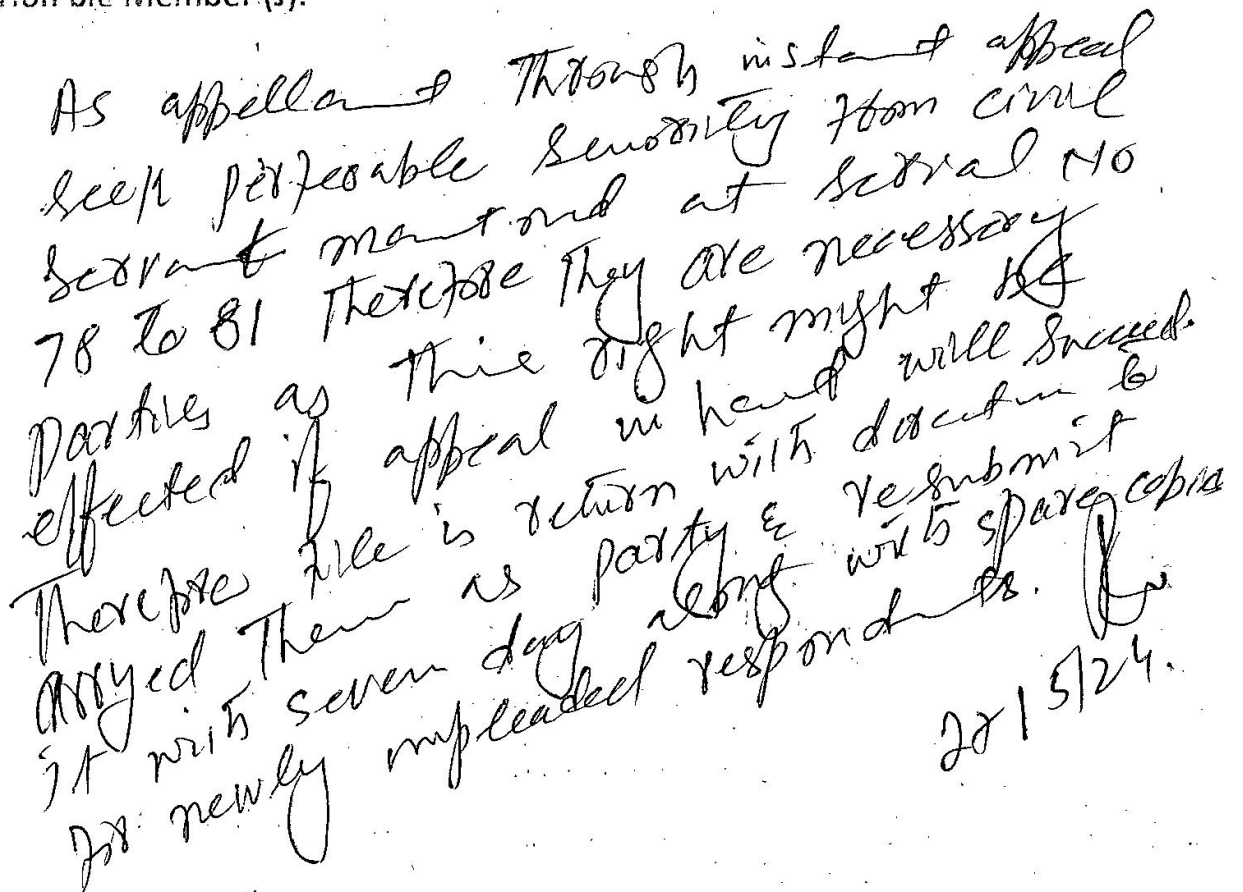 Hon'ble Member (s).
As appellant Through instant appeal
seek perferable Seniority from civil
servant mantiond at serial No
78 to 81 Therefore They are necessary
parties as thie right might be
effected if appeal in hand will Succeed.
Therefore file is return with direction to
arryed Them as party & resubmit
it with seven day along with spare copies
for newly impleaded respondents.
22/5/24.